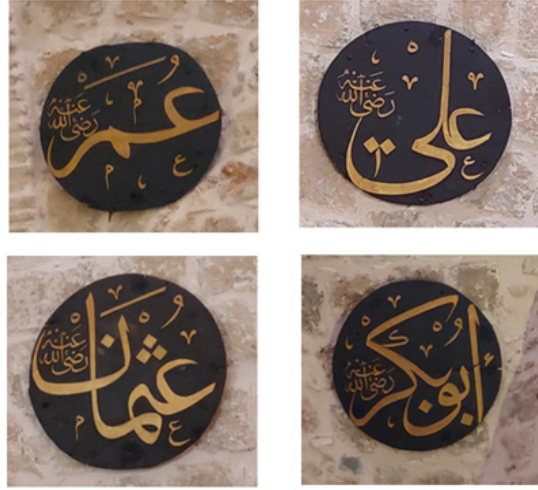 عمر رضي الله عنه
علي رضي الله عنه
عثمان رضي الله عنه
أبو بكر رضي الله عنه